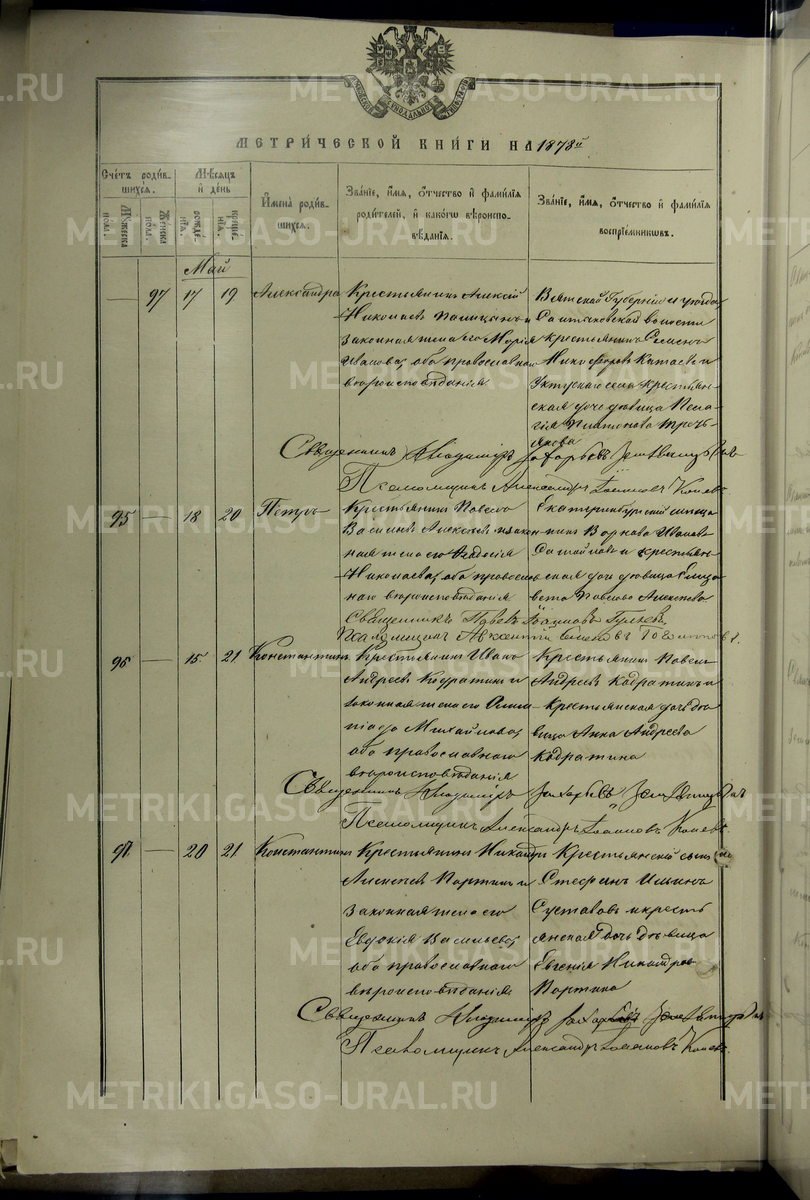 МЕТРИ́ЧЕСКОЙ КНИ́ГИ НА 1878й
Сче́тъ роди́в-
шихся.
Му́жеска
полꙋ.
Же́нска
полꙋ.
Мѣ́сяцъ
и҆ де́нь
рожде́-
нїѧ.
креще́-
нїѧ.
И҆мена̀ роди́в-
шихся.
Зва́нїе, и҆́мѧ, ѻ҆́тчество и҆ фами́лїѧ
роди́телей, и҆ како́гѡ вѣроиспо-
вѣ́данїѧ.
Зва́нїе, и҆́мѧ, ѻ҆́тчество и҆ фами́лїѧ
воспрїе́мникѡвъ.
Май
97 17 19 Александра
Крестьянинъ Алексій
Николаевъ Палицынъ и
законная жена его Марія
Иванова, оба православнаго
вѣроисповѣданія
Вятской Губерніи и уѣзда,
волости
крестьянинъ Семенъ
Никифоровъ Китаевъ и
Уктускаго села крестьян-
ская дочь дѣвица Пела-
гія Платонова Треть-
якова
Священникъ Владиміръ Захарьевъ Земляницынъ
Псаломщикъ Александръ Іоанновъ Коневъ.
95 — 18 20 Петръ
Крестьянинъ Павелъ
Васильевъ Алексѣевъ и закон-
ная жена его Ѳеодосія
Николаева, оба православ-
наго вѣроисповѣданія
Екатеринбургскій мѣща-
нинъ Иванов
и крестьян-
ская дочь дѣвица Елиза-
вета Павлова Алексѣева
Священникъ Павелъ Іоанновъ
Псаломщикъ
96 — 15 21 Константинъ
Крестьянинъ Иванъ
Андреевъ Кадратинъ и
законная жена его Олим-
піада Михайлова,
оба православнаго
вѣроисповѣданія
Крестьянинъ Павелъ
Андреевъ Кадратинъ и
крестьянская дочь дѣ-
вица Анна Андреева
Кадратина
Священникъ Владиміръ Захарьевъ Земляницынъ
Псаломщикъ Александръ Іоанновъ Коневъ.
97 — 20 21 Константинъ
Крестьянинъ Никандръ
Алексѣевъ Портинъ и
законная жена его
Евдокія Васильева,
оба православнаго
вѣроисповѣданія
Крестьянскій сынъ
Стефанъ Ильинъ
Суставовъ и кресть-
янская дочь дѣвица
Евгенія Никандрова
Портина
Священникъ Владиміръ Захарьевъ Земляницынъ
Псаломщикъ Александръ Іоанновъ Коневъ.
METRIKI.GASO-URAL.RU